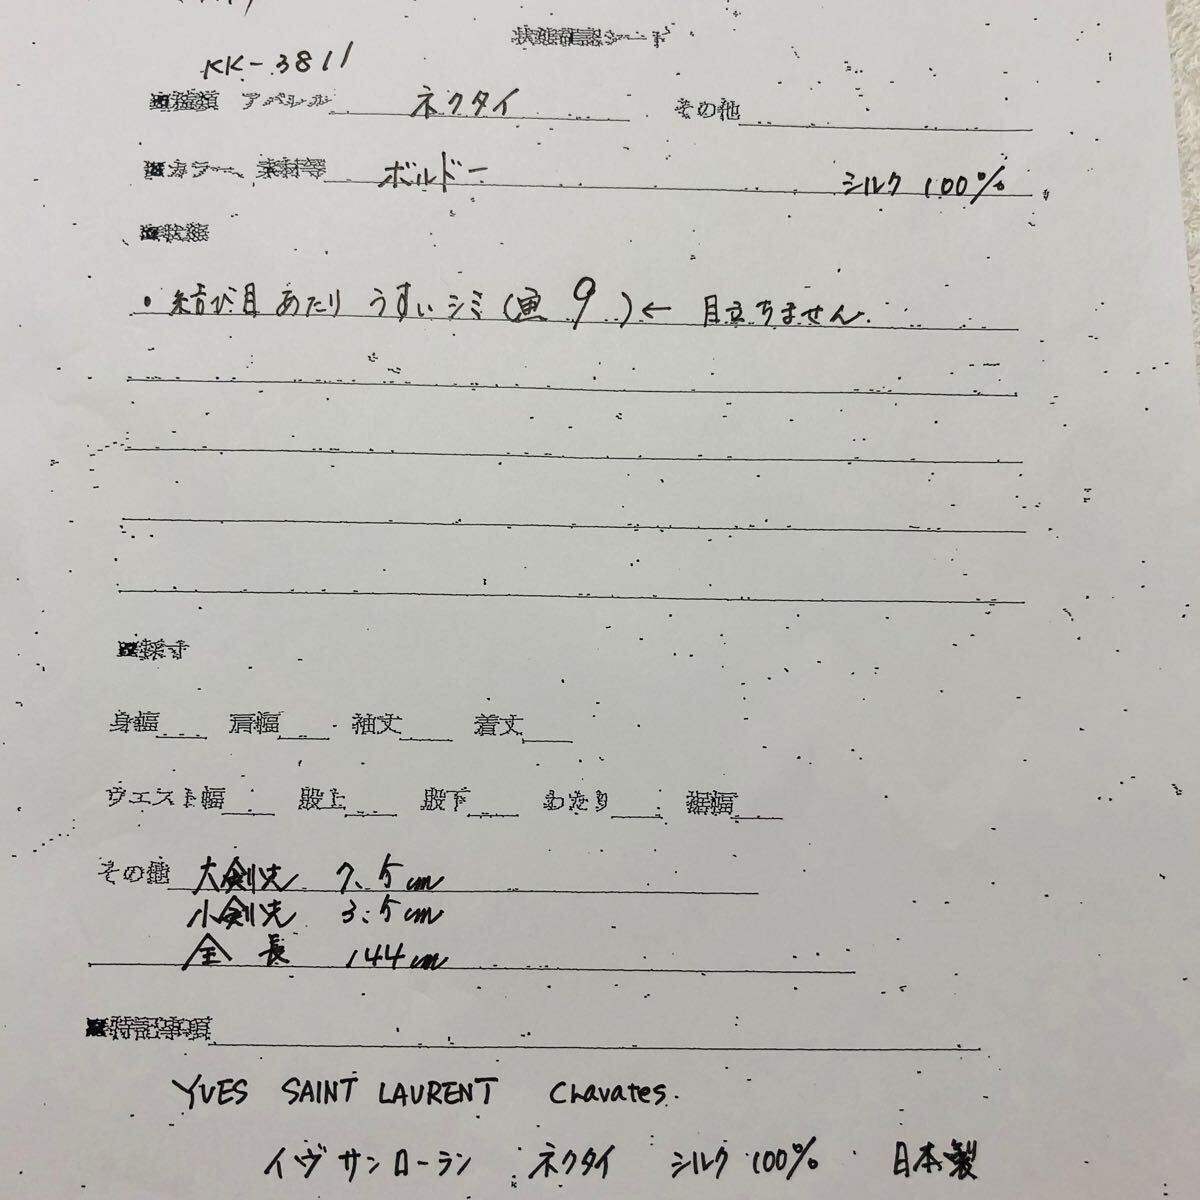 状態確認シート
KK-3811
■種類 アパレル ネクタイ その他
■カラー、素材等 ボルドー シルク 100%
■状態
・結び目 あたり うすい シミ (画 9) ← 目立ちません.
■採寸
身幅 肩幅 袖丈 着丈
ウエスト幅 股上 股下 わたり 裾幅
その他 大剣先 7.5cm
小剣先 3.5cm
全 長 144cm
■特記事項
YVES SAINT LAURENT Chavates.
イヴ サン ローラン ネクタイ シルク 100% 日本製